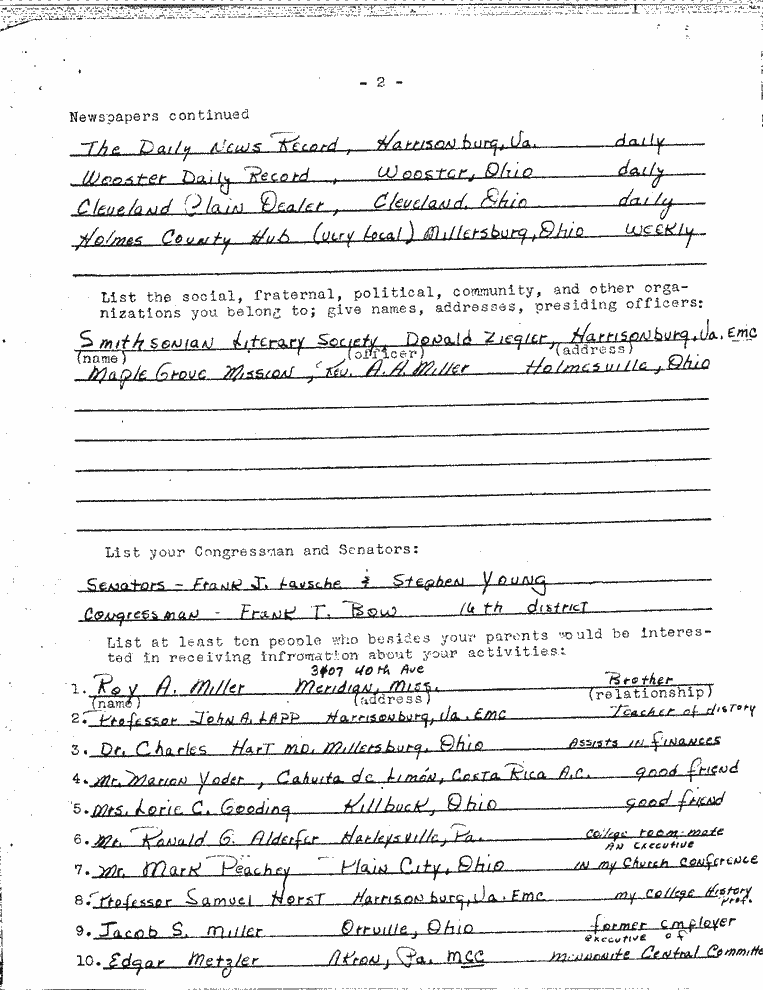 - 2 -
Newspapers continued
The Daily News Record, Harrisonburg, Va. daily
Wooster Daily Record, Wooster, Ohio daily
Cleveland Plain Dealer, Cleveland, Ohio daily
Holmes County Hub (very local) Millersburg, Ohio weekly
List the social, fraternal, political, community, and other orga-
nizations you belong to; give names, addresses, presiding officers:
Smithsonian Literary Society, Donald Ziegler, Harrisonburg, Va. EMC
(name) (officer) (address)
Maple Grove Mission, Rev. A.A. Miller Holmesville, Ohio
List your Congressman and Senators:
Senators - Frank J. Lausche & Stephen Young
Congressman - Frank T. Bow 16th district
List at least ten people who besides your parents would be interes-
ted in receiving infromation about your activities:
3407 40th Ave
1. Roy A. Miller Meridian, Miss. Brother
(name) (address) (relationship)
2. Professor John A. Lapp Harrisonburg, Va. EMC Teacher of history
3. Dr. Charles Hart MD. Millersburg, Ohio Assists in finances
4. Mr. Marion Yoder, Cahuita de Limón, Costa Rica A.C. good friend
5. Mrs. Lorie C. Gooding Killbuck, Ohio good friend
6. Mr. Ronald G. Alderfer Harleysville, Pa. College room-mate
An executive
7. Mr. Mark Peachey Plain City, Ohio in my Church conference
8. Professor Samuel Horst Harrisonburg, Va. EMC my College History prof.
9. Jacob S. Miller Orrville, Ohio former employer
executive of
10. Edgar Metzler Akron, Pa. MCC Mennonite Central Committe